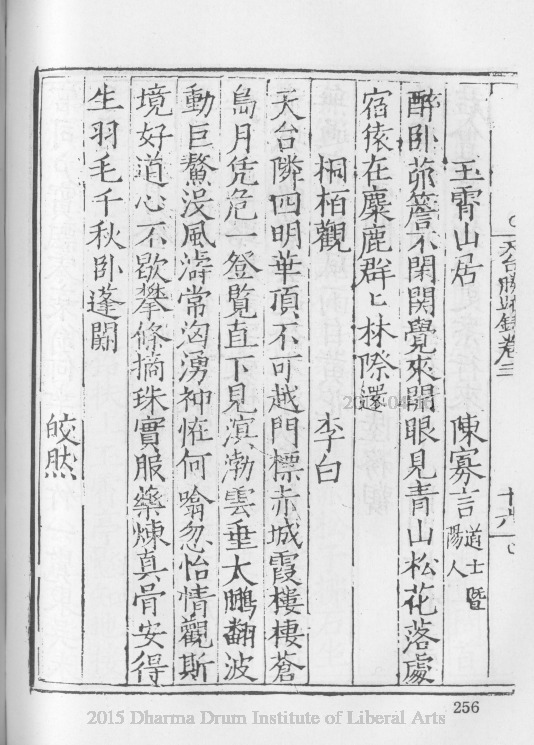 天台勝蹟錄卷三
十六
玉霄山居
陳寡言 道士暨陽人
醉卧茆簷不閉関覺來開眼見青山松花落處
宿猿在麋鹿群匕林際還
桐栢觀
李白
天台隣四明華頂不可越門標赤城霞樓棲蒼
島月凭危豋覧直下見溟渤雲垂大鵬翻波
動巨鰲没風濤常洶湧神怪何噏忽怡情觀斯
境好道心不歇攀條摘珠實服藥煉真骨安得
生羽毛千秋卧蓬闕
皎然
256
2015 Dharma Drum Institute of Liberal Arts